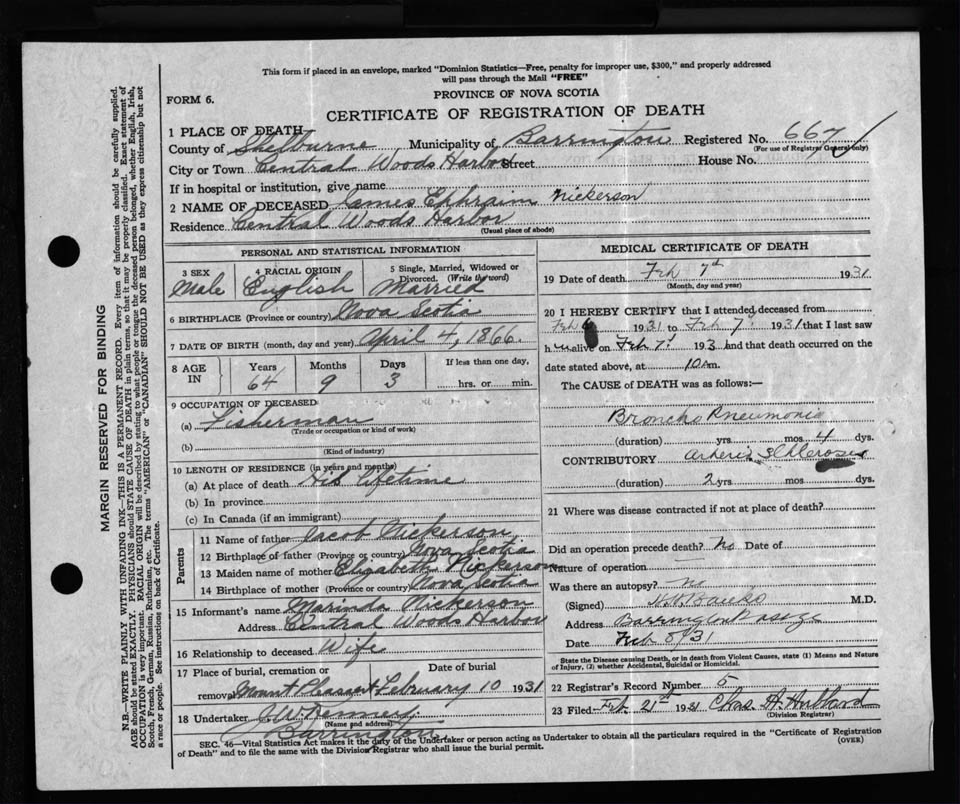 This form if placed in an envelope, marked "Dominion Statistics—Free, penalty for improper use, $300," and properly addressed
will pass through the Mail "FREE"
PROVINCE OF NOVA SCOTIA
FORM 6.
CERTIFICATE OF REGISTRATION OF DEATH
1 PLACE OF DEATH
County of Shelburne Municipality of Barrington Registered No. 667
(For use of Registrar General only)
City or Town Central Woods Harbor Street House No.
If in hospital or institution, give name
2 NAME OF DECEASED James Ephraim Nickerson
Residence Central Woods Harbor
(Usual place of abode)
PERSONAL AND STATISTICAL INFORMATION
3 SEX 4 RACIAL ORIGIN 5 Single, Married, Widowed or
Divorced. (Write the word)
Male English Married
6 BIRTHPLACE (Province or country) Nova Scotia
7 DATE OF BIRTH (month, day and year) April 4, 1866.
8 AGE IN Years Months Days If less than one day,
64 9 3 hrs. or min.
9 OCCUPATION OF DECEASED
(a) Fisherman
(Trade or occupation or kind of work)
(b)
(Kind of industry)
10 LENGTH OF RESIDENCE (in years and months)
(a) At place of death His lifetime
(b) In province
(c) In Canada (if an immigrant)
Parents
11 Name of father Jacob Nickerson
12 Birthplace of father (Province or country) Nova Scotia
13 Maiden name of mother Elizabeth Nickerson
14 Birthplace of mother (Province or country) Nova Scotia
15 Informant's name Marinda Nickerson
Address Central Woods Harbor
16 Relationship to deceased Wife
17 Place of burial, cremation or Date of burial
removal Mount Pleasant February 10 1931
18 Undertaker J. W. Kenney
(Name and address)
Barrington
MEDICAL CERTIFICATE OF DEATH
19 Date of death Feb 7th 1931
(Month, day and year)
20 I HEREBY CERTIFY that I attended deceased from
Feb 1931 to Feb 7 1931 that I last saw
h im alive on Feb 7 193 and that death occurred on the
date stated above, at 10 am.
The CAUSE of DEATH was as follows:
Broncho Pneumonia
(duration) yrs mos 4 dys.
CONTRIBUTORY
(duration) 2 yrs mos dys.
21 Where was disease contracted if not at place of death?
Did an operation precede death? no Date of
Nature of operation
Was there an autopsy? no
(Signed) M.D.
Address Barrington Passage
Date Feb 8 31
State the Disease causing Death, or in death from Violent Causes, state (1) Means and Nature
of Injury, (2) whether Accidental, Suicidal or Homicidal.
22 Registrar's Record Number 5
23 Filed Feb. 21st 1931 Chas. A. Hubbard
(Division Registrar)
SEC. 46—Vital Statistics Act makes it the duty of the Undertaker or person acting as Undertaker to obtain all the particulars required in the "Certificate of Registration
of Death" and to file the same with the Division Registrar who shall issue the burial permit. (OVER)
MARGIN RESERVED FOR BINDING
N.B.—WRITE PLAINLY WITH UNFADING INK—THIS IS A PERMANENT RECORD. Every item of information should be carefully supplied.
AGE should be stated EXACTLY. PHYSICIANS should STATE CAUSE OF DEATH in plain terms, so that it may be properly classified. Exact statement of
OCCUPATION is very important. RACIAL ORIGIN will be described by stating to what people or tongue the deceased person belonged, whether English, Irish,
Scotch, French, German, Russian, Ruthenian, etc. The terms "AMERICAN" or "CANADIAN" SHOULD NOT BE USED as they express citizenship but not
a race or people. See instructions on back of Certificate.